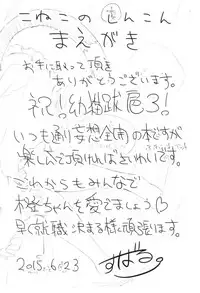 こねこの○んこん
まえがき
お手に取って頂き
ありがとうございます。
祝!幼猫跋扈3!
いつも創妄想全開の本ですが
楽しんで頂ければさいわいです。
これからもみんなで
橙ちゃんを愛でましょう♡
早く就職決まる様に頑張ります。
2015.6.23
すばる